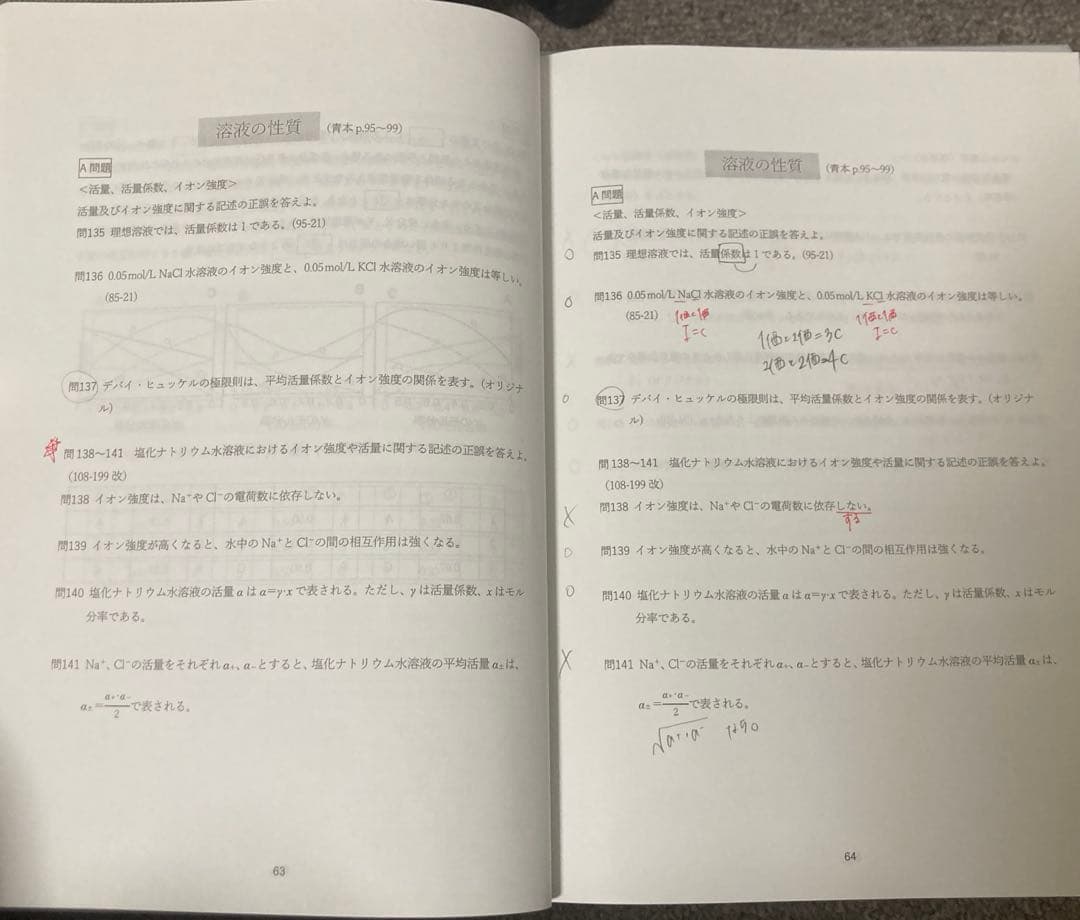 溶液の性質 (青本 p.95～99)
A 問題
<活量、活量係数、イオン強度>
活量及びイオン強度に関する記述の正誤を答えよ。
問135 理想溶液では、活量係数は1である。(95-21)
問136 0.05mol/L NaCl 水溶液のイオン強度と、0.05mol/L KCl 水溶液のイオン強度は等しい。
(85-21)
問137 デバイ・ヒュッケルの極限則は、平均活量係数とイオン強度の関係を表す。(オリジナ
ル)
問138～141 塩化ナトリウム水溶液におけるイオン強度や活量に関する記述の正誤を答えよ。
(108-199 改)
問138 イオン強度は、Na⁺や Cl⁻の電荷数に依存しない。
問139 イオン強度が高くなると、水中の Na⁺と Cl⁻の間の相互作用は強くなる。
問140 塩化ナトリウム水溶液の活量 a は a=γ·x で表される。ただし、γは活量係数、x はモル
分率である。
問141 Na⁺、Cl⁻の活量をそれぞれ a₊、a₋とすると、塩化ナトリウム水溶液の平均活量 a±は、
a±=a₊·a₋/2 で表される。
63
溶液の性質 (青本 p.95～99)
A 問題
<活量、活量係数、イオン強度>
活量及びイオン強度に関する記述の正誤を答えよ。
○ 問135 理想溶液では、活量係数は1である。(95-21)
○ 問136 0.05mol/L NaCl 水溶液のイオン強度と、0.05mol/L KCl 水溶液のイオン強度は等しい。
(85-21) 1価と1価 1価と1価
I=C I=C
1価と2価=3C
2価と2価=4C
○ 問137 デバイ・ヒュッケルの極限則は、平均活量係数とイオン強度の関係を表す。(オリジナ
ル)
問138～141 塩化ナトリウム水溶液におけるイオン強度や活量に関する記述の正誤を答えよ。
(108-199 改)
× 問138 イオン強度は、Na⁺や Cl⁻の電荷数に依存しない。
する
○ 問139 イオン強度が高くなると、水中の Na⁺と Cl⁻の間の相互作用は強くなる。
○ 問140 塩化ナトリウム水溶液の活量 a は a=γ·x で表される。ただし、γは活量係数、x はモル
分率である。
× 問141 Na⁺、Cl⁻の活量をそれぞれ a₊、a₋とすると、塩化ナトリウム水溶液の平均活量 a±は、
a±=a₊·a₋/2 で表される。
√a⁺·a⁻ なら○
64